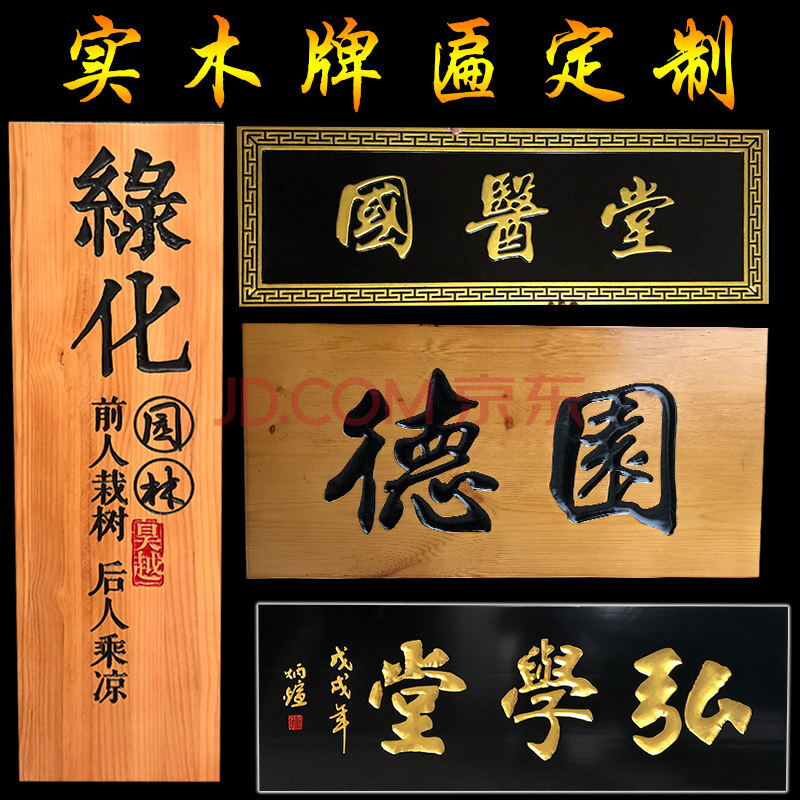 实木牌匾定制
綠化
园林
昊越
前人栽树 后人乘凉
國醫堂
德園
弘學堂
戊戌年
炳煊
JD.COM 京东